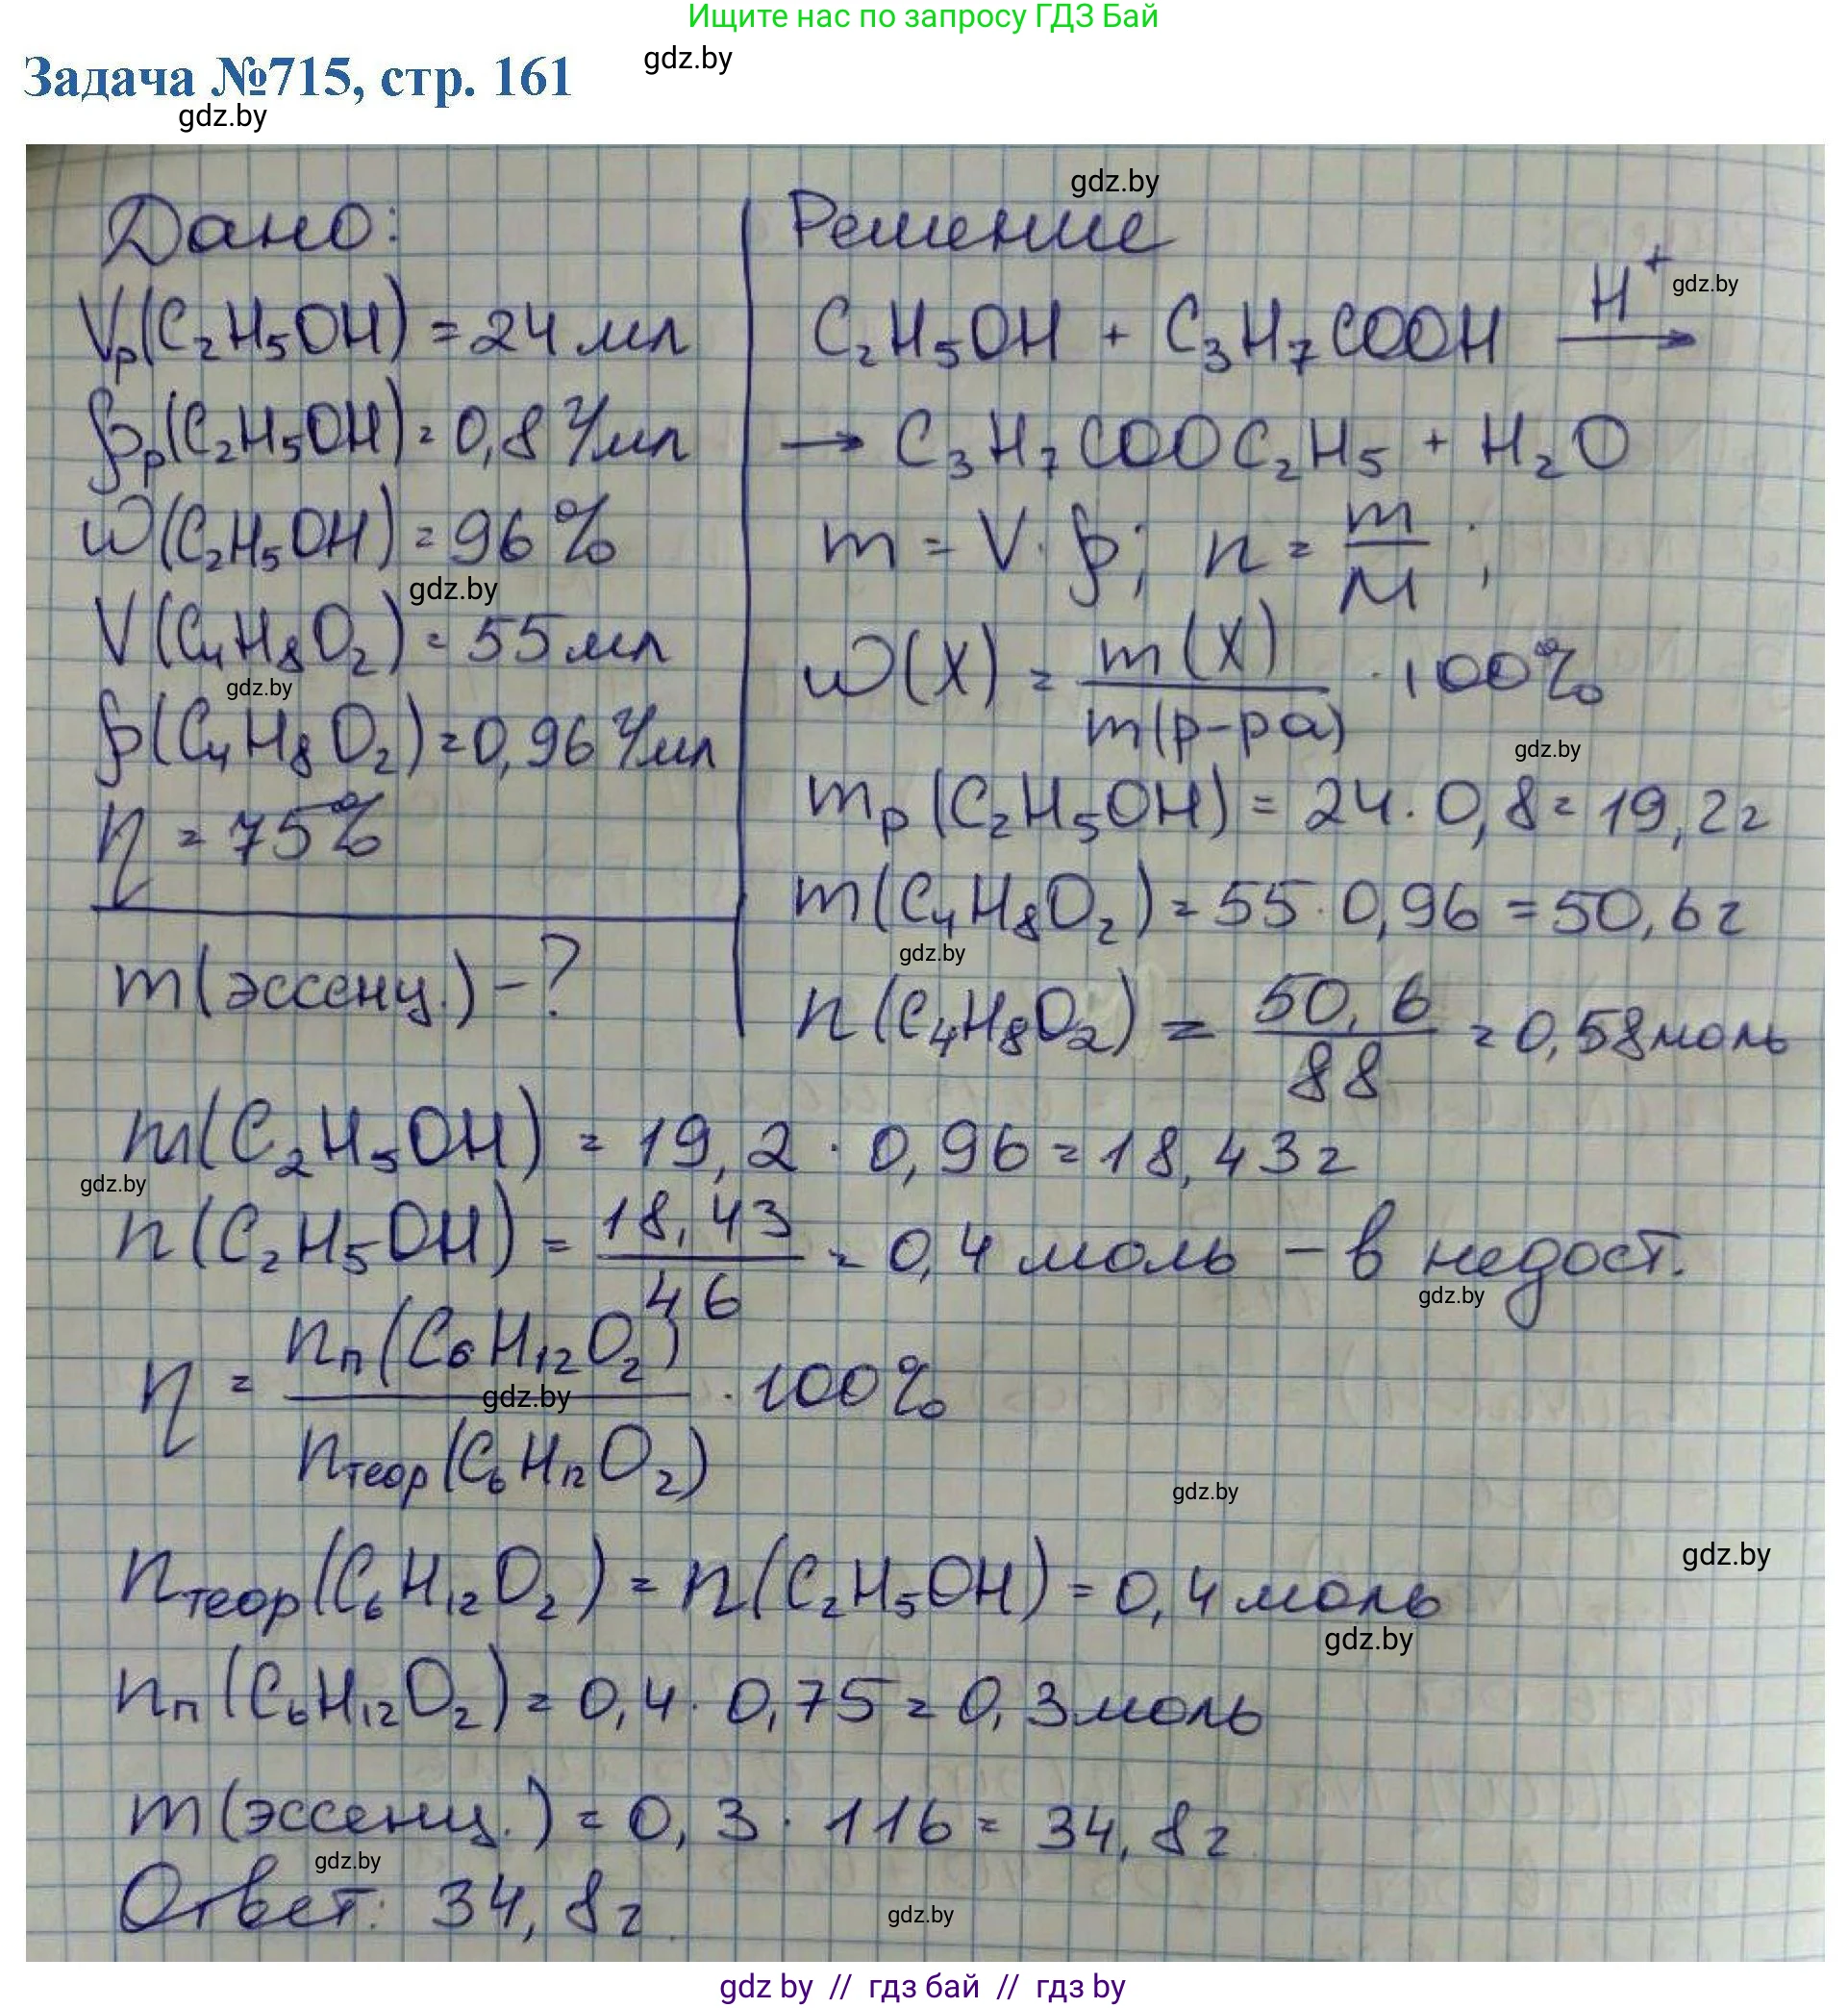 Ищите нас по запросу ГДЗ Бай
Задача №715, стр. 161
gdz.by
gdz.by
gdz.by
Дано:
Vр(C₂H₅OH) = 24 мл
ρр(C₂H₅OH) = 0,8 г/мл
ω(C₂H₅OH) = 96 %
gdz.by
V(C₄H₈O₂) = 55 мл
gdz.by
ρ(C₄H₈O₂) = 0,96 г/мл
η = 75%
m(эссенц.) - ?
Решение
gdz.by
C₂H₅OH + C₃H₇COOH —H⁺→
→ C₃H₇COOC₂H₅ + H₂O
m = V · ρ; n = m/M ;
ω(X) = m(X)/m(р-ра) · 100%
gdz.by
mр(C₂H₅OH) = 24 · 0,8 = 19,2 г
m(C₄H₈O₂) = 55 · 0,96 = 50,6 г
gdz.by
n(C₄H₈O₂) = 50,6/88 = 0,58 моль
m(C₂H₅OH) = 19,2 · 0,96 = 18,43 г
gdz.by
n(C₂H₅OH) = 18,43/46 = 0,4 моль - в недост.
gdz.by
η = nп(C₆H₁₂O₂)/nтеор(C₆H₁₂O₂) · 100%
gdz.by
gdz.by
gdz.by
nтеор(C₆H₁₂O₂) = n(C₂H₅OH) = 0,4 моль
gdz.by
nп(C₆H₁₂O₂) = 0,4 · 0,75 = 0,3 моль
m(эссенц.) = 0,3 · 116 = 34,8 г
gdz.by
Ответ: 34,8 г.
gdz.by
gdz by // гдз бай // гдз by